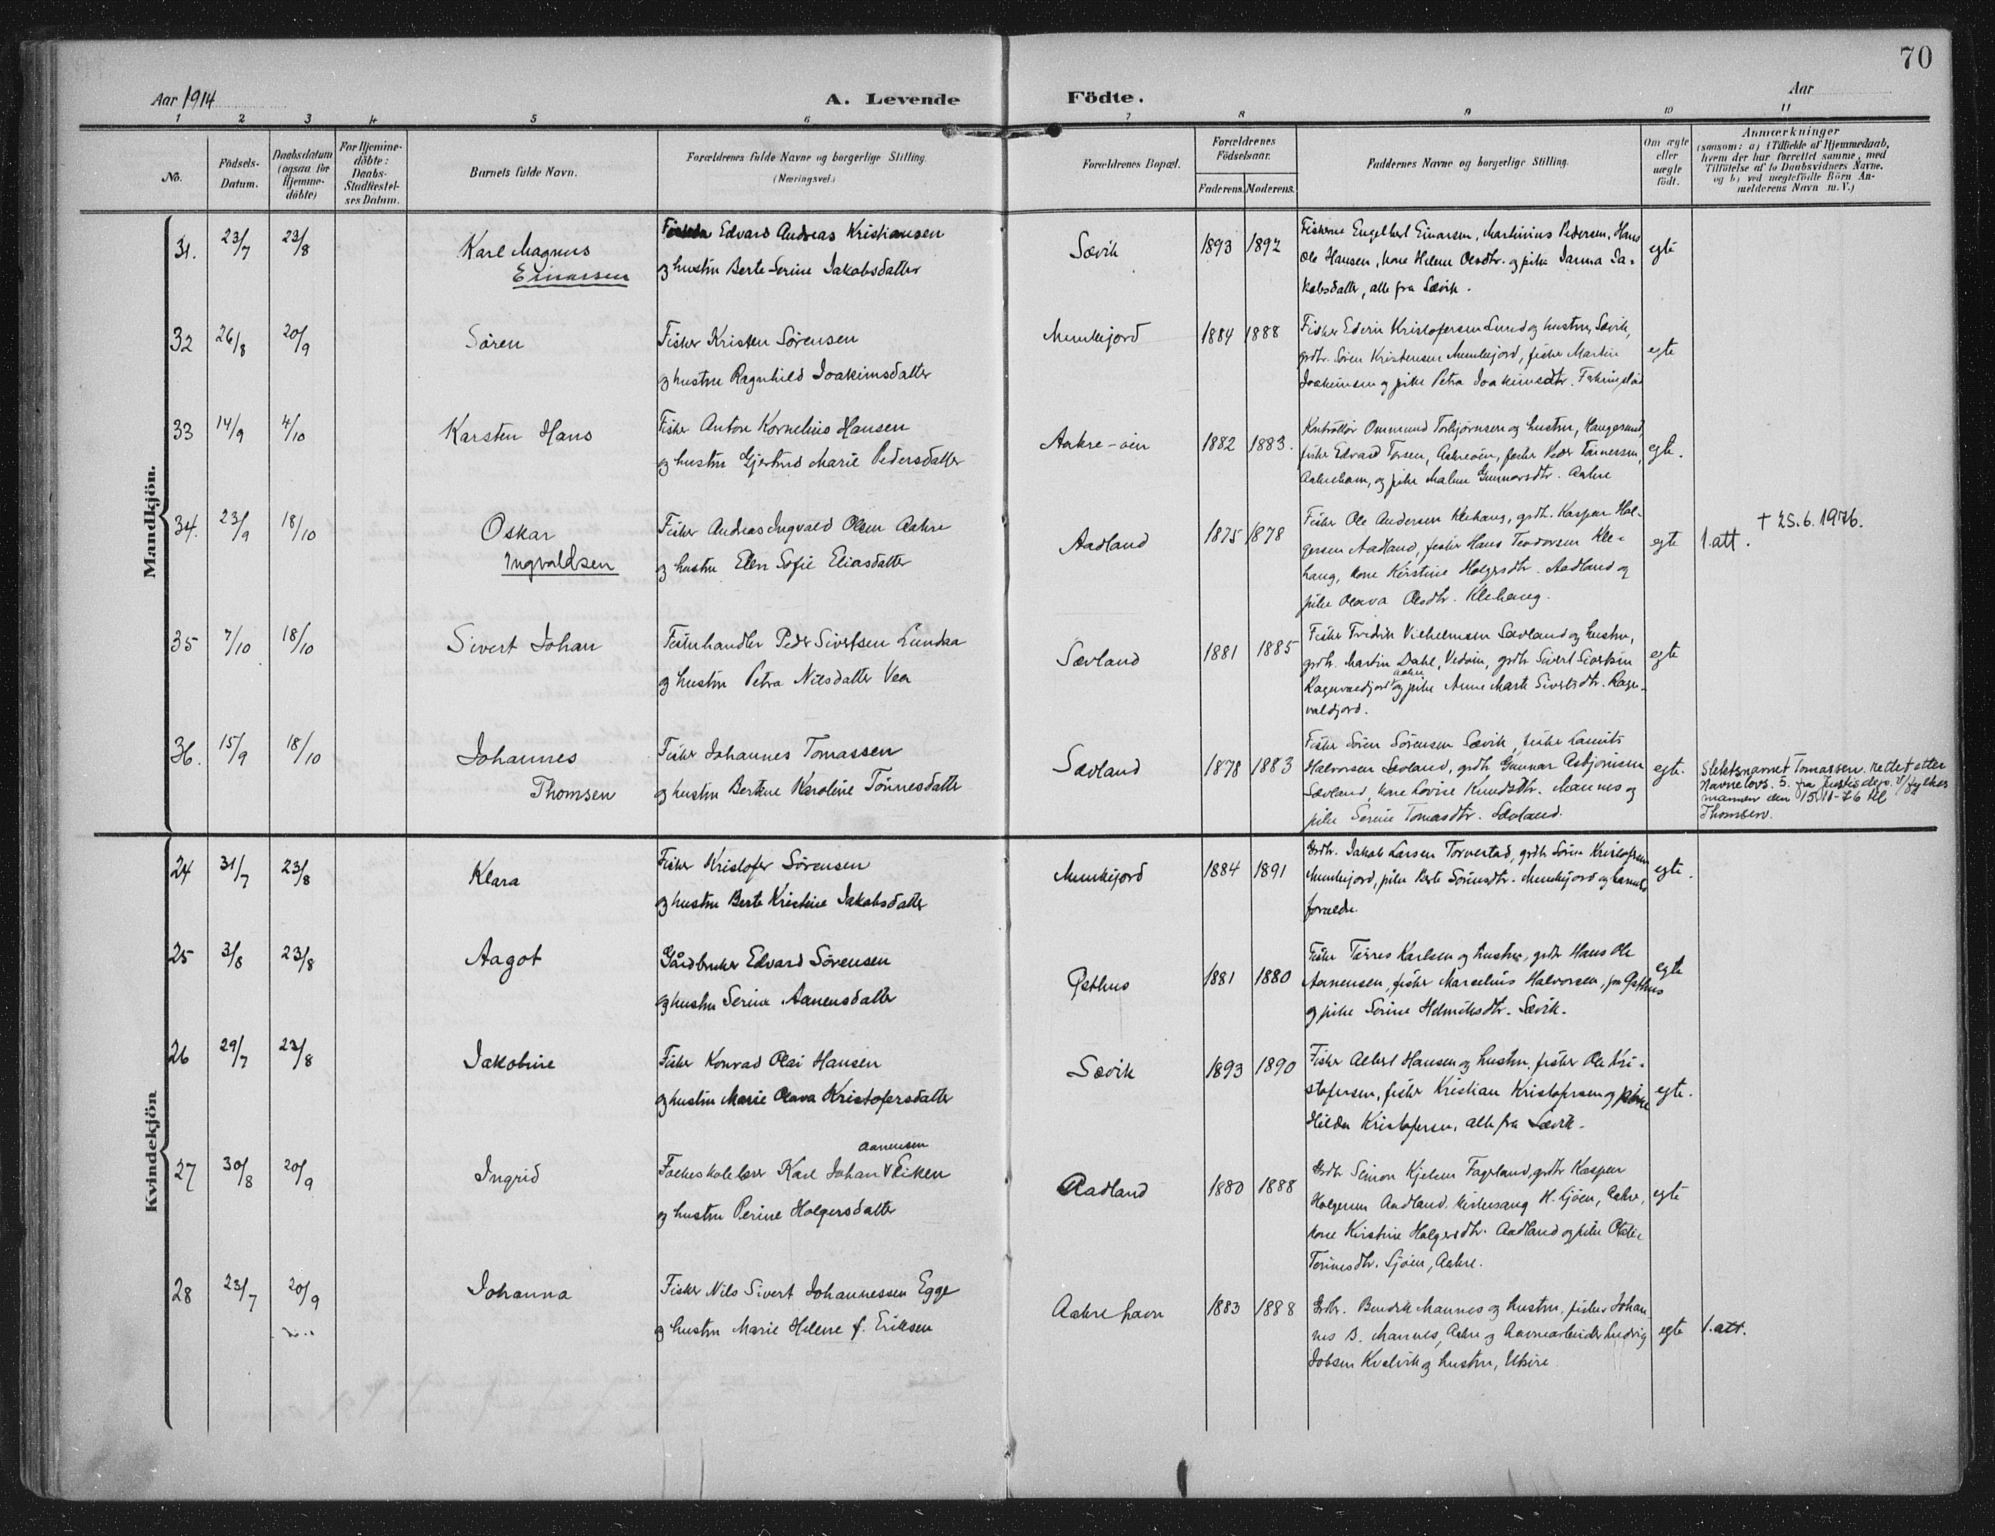 70
Aar 1914
A. Levende
Födte.
Aar
1 2 3 4 5 6 7 8 9 10 11
No.
Födsels-
Datum.
Daabsdatum
(ogsaa for
Hjemme-
döbte)
For Hjemme-
döbte:
Daabs-
Stadfæstel-
ses Datum.
Barnets fulde Navn.
Forældrenes fulde Navne og borgerlige Stilling.
(Næringsvei.)
Forældrenes Bopæl.
Forældrenes
Födselsaar.
Faderens. Moderens.
Faddernes Navne og borgerlige Stilling.
Om ægte
eller
uægte
födt.
Anmærkninger
(saasom: a) i Tilfælde af Hjemmedaab,
hvem der har forrettet samme, med
Tilföielse af to Daabsvidners Navne.
og b) ved uægtefödte Börn An-
melderens Navn m. V.)
Mandkjön.
31. 23/7 23/8 Karl Magnus
Einarsen
Edvard Andreas Kristiansen
og hustru Berte Serine Jakobsdatter
Sævik 1893 1892
Fiskerne Engelbert Einarsen, Martinius Pedersen, Hans
Ole Hansen, kone Helene Olsdtr. og pike Janna Ja-
kobsdatter, alle fra Sævik.
egte
32 26/8 20/9 Søren
Fisker Kristen Sørensen
og hustru Ragnhild Joakimsdatter
Munkejord 1884 1888
Fisker Edvin Kristofersen Lund og hustru, Sævik,
grdbr. Søren Kristensen Munkejord, fisker Martin
Joakimsen og pike Petra Joakimsdtr.
egte
33 14/9 4/10 Karsten Hans
Fisker Anton Kornelius Hansen
og hustru Gjertrud Marie Pedersdatter
Aakre-øen 1882 1883.
Kontrollør Ommund Torbjørnsen og hustru, Haugesund,
fisker Edvard Torsen, Aakreøen, fisker Peder Tønnessen,
Aakrehavn, og pike Malene Gunnarsdtr. Aakre
egte.
34. 23/9 18/10 Oskar
Ingvaldsen
Fisker Andreas Ingvald Olsen Aakre
og hustru Elen Sofie Eliasdatter
Aadland 1875 1878
Fisker Ole Andersen Klehaug, grdbr. Kaspar Hol-
gersen Aadland, fisker Hans Teodorsen Kle-
haug, kone Kirstine Holgersdtr. Aadland og
pike Olava Olsdtr. Klehaug.
egte 1. att. + 25.6.1976.
35 7/10 18/10 Sivert Johan
Fiskehandler Peder Sivertsen Lundaa
og hustru Petra Nilsdatter Vea
Sævland 1881 1885
Fisker Fredrik Vilhelmsen Sævland og hustru,
grdbr. Martin Dahl, Vedøen, grdbr Sivert Sivertsen
Ragnvaldjord og pike Anne Marte Sivertsdtr. Ragn-
valdjord.
egte
36. 15/9 18/10 Johannes
Thomsen
Fisker Johannes Tomassen
og hustru Bertine Karoline Tønnesdatter
Sævland 1878 1883
Fisker Søren Sørensen Sævik, fisker Laurits
Halvorsen Sævland, grdbr Gunnar Asbjørnsen
Sævland, kone Lovise Knudsdtr. Mannes og
pike Serine Tomasdtr. Sævland.
egte.
Slektsnavnet Tomassen rettet etter
Navnelovs. 5. fra Justis dep. v/fylkes
mannen den 15/11-76 til
Thomsen.
Kvindekjön
24 31/7 23/8 Klara
Fisker Kristofer Sørensen
og hustru Berte Kristine Jakobsdatter
Munkejord 1884 1891
Grdbr. Jakob Larsen Torvestad, grdbr Søren Kristofersen
Munkejord, pike Berte Sørensdtr. Munkejord og barnets
forældre.
egte.
25 3/8 23/8 Aagot
Gårdbruker Edvard Sørensen
og hustru Serine Aanensdatter
Østhus 1881 1880
Fisker Tørres Karlsen og hustru, grdbr Hans Ole
Aanensen, fisker Marselius Halvorsen, fra Østhus
og pike Serine Helmiksdtr. Sævik.
egte
26 29/7 23/8 Jakobine
Fisker Konrad Olai Hansen
og hustru Marie Olava Kristofersdatter
Sævik 1893 1890
Fisker Albert Hansen og hustru, fisker Ole Kri-
stofersen, fisker Kristian Kristofersen og pike
Hilda Kristofersen, alle fra Sævik.
egte.
27 30/8 20/9 Ingrid
Aanensen
Folkeskolelærer Karl Johan v Eiken
og hustru Perine Holgersdatter
Aadland 1880 1888
Grdbr Simon Kjelsen Fagerland, grdbr Kaspar
Holgersen Aadland, kirkesang. H. Sjøen, Aakre,
kone Kirstine Holgersdtr. Aadland og pike
Tønnesdtr. Sjøen, Aakre.
egte
28 23/7 20/9 Johanna
Fisker Nils Sivert Johannessen Egge
og hustru Marie Helene f. Eriksen
Aakre havn 1883 1888
Grdbr. Bendik Mannes og hustru, fisker Johan-
nes B. Mannes, Aakre og havnearbeider Ludvig
Jobsen Kvalvik og hustru, Utsire.
egte 1. att.